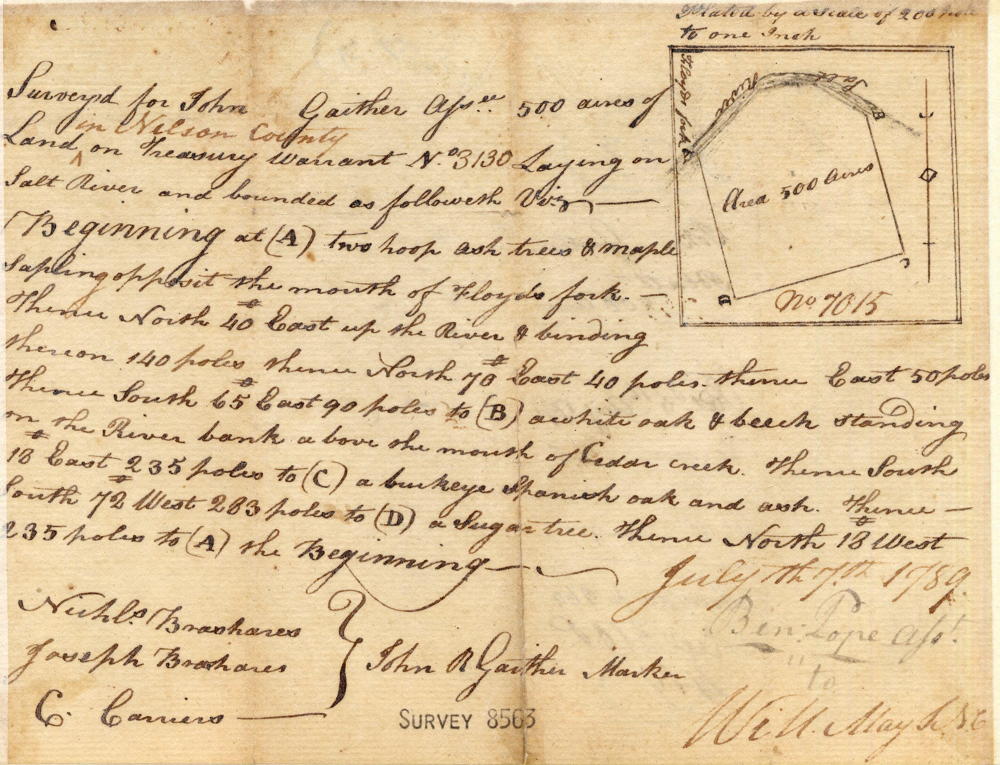 Plated by a Scale of 200 pole
to one Inch
Survey'd for John Gaither Assee 500 acres of
in Nelson County
Land ^ on Treasury Warrant No. 3130 Laying on
Salt River and bounded as followeth Viz
Beginning at (A) two hoop ash trees & maple
Sapling opposit the mouth of Floyds fork.
Thence North 40 East up the River & binding
thereon 140 poles thence North 70 East 40 poles. thence East 50 poles
Thence South 65 East 90 poles to (B) a white oak & beech standing
on the River bank above the mouth of Cedar creek. Thence South
18 East 235 poles to (C) a buckeye Spanish oak and ash. Thence
South 72 West 283 poles to (D) a Sugar tree. Thence North 18 West
235 poles to (A) the Beginning
July th 7th 1789
Nichls Brashares
Joseph Brashares
C. Carriers
John R Gaither Marker
Ben: Pope Asst.
to
Will May S N C
SURVEY 8503
Floyds fork
River
Salt
A
B
C
D
Area 500 Acres
No 7015